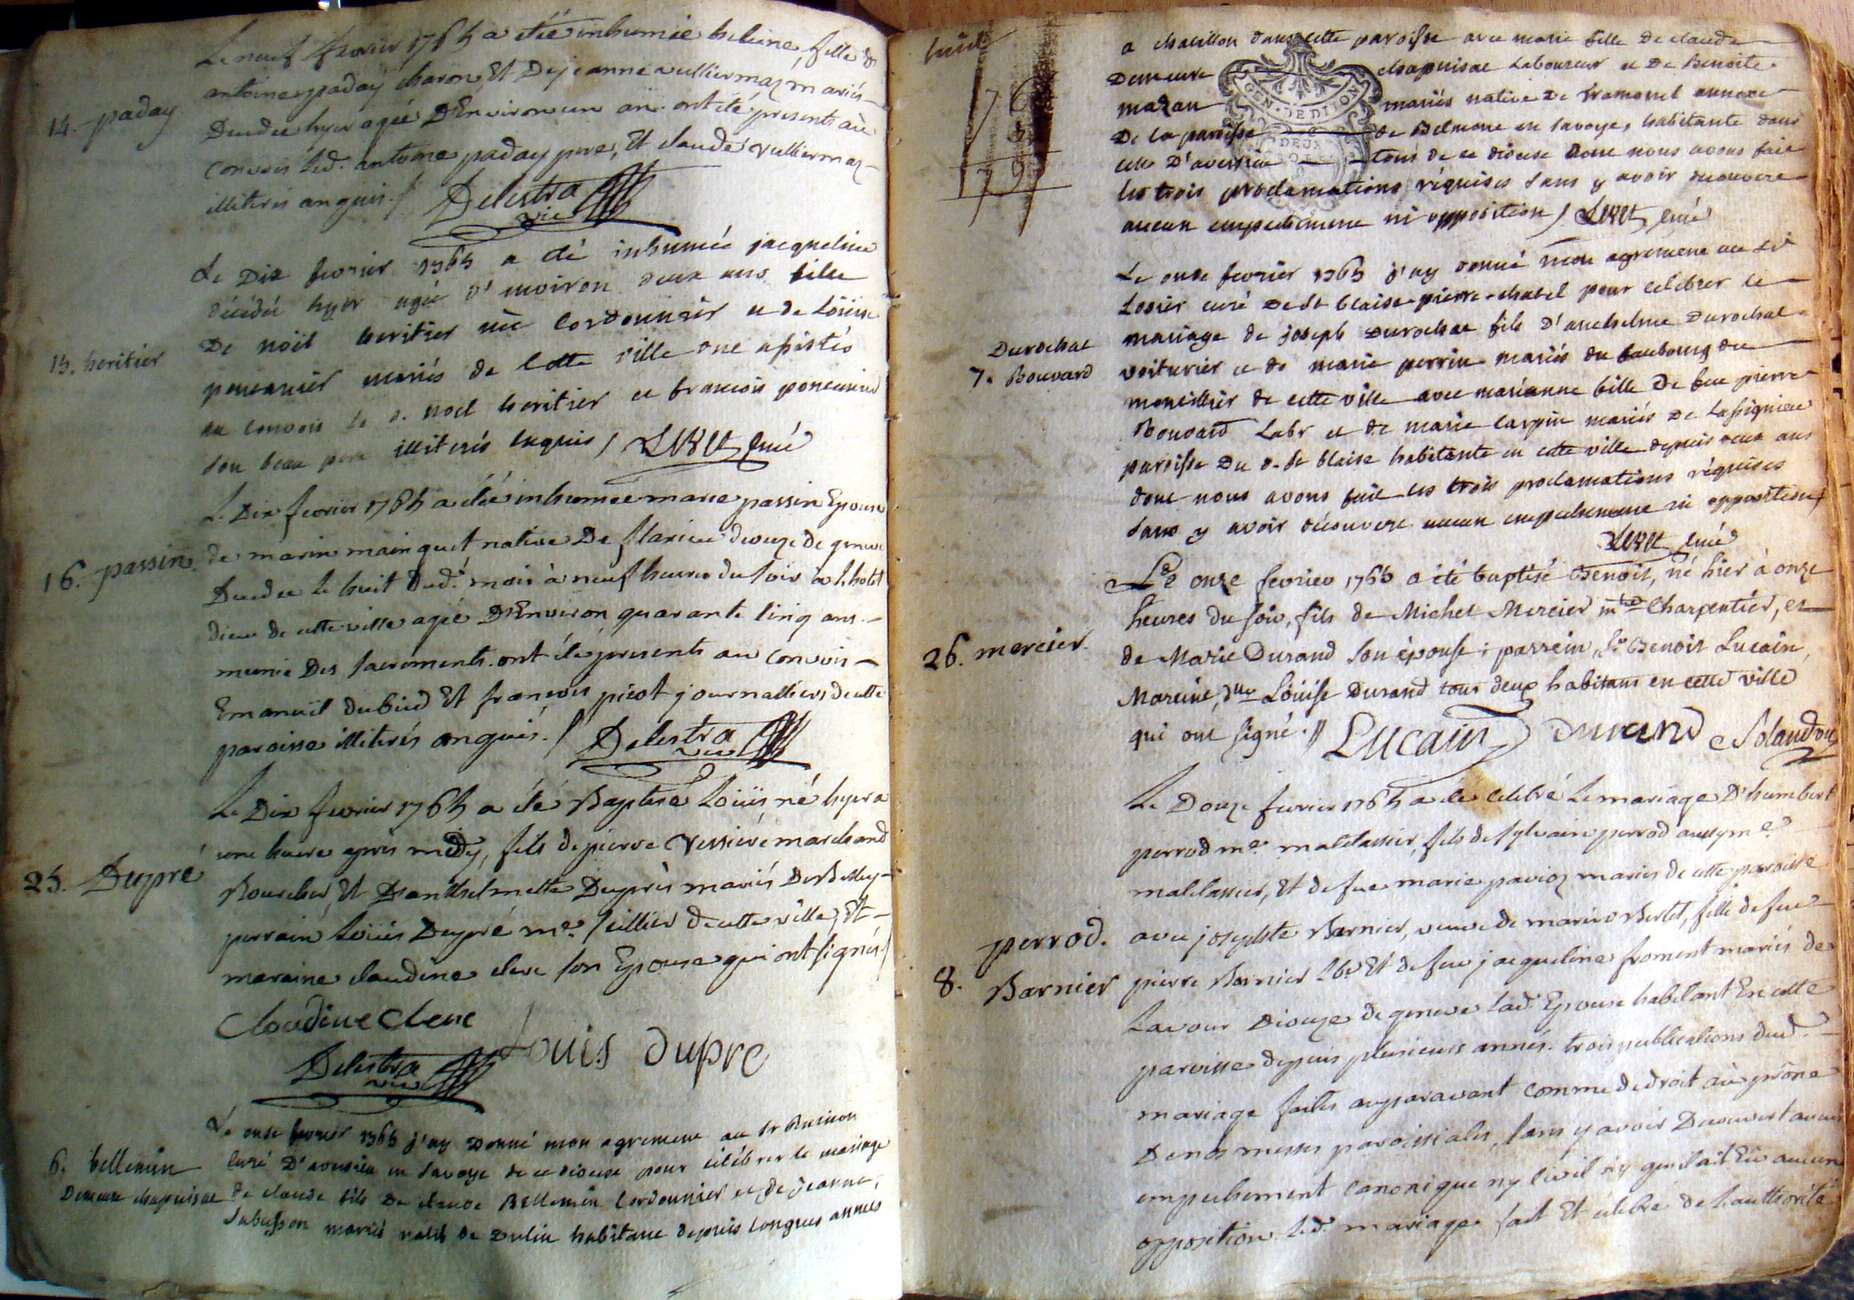 Le neuf fevrier 1765 a été inhumée heleine, fille d
14. paday
antoine paday charon, Et De jeanne vulliermoz mariés
Decedée hyer agée D'Environ un an. ont été présents au
convois led. antoine paday pere, Et claude vulliermoz
illiterés enquis ./. Delestra vic
Le Dix fevrier 1765 a eté inhumée jacqueline
décédée hyer agée d'environ deux ans fille
15. heritier
De noël heritier me Cordonnier et de Loüise
poncenier mariés de Cette ville ont assistés
au convois le d. noël heritier et francois poncenier
son beau pere illiterés enquis / curé
Le Dix fevrier 1765 a été inhumée marie passin Epouse
16. passin
de marin mainguet native De diocèze de geneve
Decedée le huit Dud. mois à neuf heures du soir a L'hotel
dieu de cette ville agée D'Environ quarante cinq ans
munie Des sacrements. ont été présents au Convois
Emanuël dubied Et françois picot journalliers de cette
paroisse illiterés enquis ./. Delestra vic
Le Dix fevrier 1765 a été Baptisé Loüis né hyer a
une heure après midy, fils de pierre vessiere marchand
25. Dupré
Boucher, Et D'anthelmette Duprès mariés De Belley
parrain Loüis Dupré me. sellier de cette ville, Et
maraine claudine clerc son Epouse qui ont signés /
Claudine Clerc
Louis dupre
Delestra vic
Le onze fevrier 1765 j'ay Donné mon agrement au Sr
6. bellemin
curé D'avressieu en savoye de ce diocese pour célébrer le mariage
Demeure chapuisat
de claude fils De claude Bellemin Cordonnier et de jeanne
mariés natif de Dulin habitant depuis longues années
a chatillon dans cette paroisse avec marie fille De claude
Demeure chapuisat Laboureur et De Benoite
mazan mariés native De tramonet annexe
De la paroisse de Belmont en savoye, habitante dans
celle D'avressieu tous de ce diocese dont nous avons fait
les trois proclamations réquises sans y avoir découvert
aucun empechement ni opposition / curé
Le onze fevrier 1765 j'ay donné mon agrement au Sr
curé De St blaise pierre-chatel pour celebrer le
Durochat
mariage de joseph Durochat fils D'anthelme Durochat
7. Bouvard
voiturier et de marie perrin mariés du faubourg du
de cette ville avec marianne fille De feu pierre
Bouvard Labr et de marie carpin mariés de
paroisse Du d. St blaise habitante en cette ville depuis deux ans
dont nous avons fait les trois proclamations réquises
sans y avoir découvert aucun empechement ni opposition /
curé
Le onze fevrier 1765 a été baptisé Benoit, né hier à onze
heures du soir, fils de Michel Mercier md Charpentier, et
26. mercier.
de Marie Durand son épouse : parrein, Sr Benoit Lucain,
Mareine, dlle Loüise Durand tous deux habitans en cette ville
qui ont signé .// Lucain Durand
Le Douze fevrier 1765 a été célébré Le mariage D'humbert
perrod me. matelassier, fils de sylvain perrod aussy me.
matelassier, Et de feue marie mariés de cette paroisse
perrod.
avec josephte Barnier, veuve de marin Berlet, fille de feu
8. Barnier
pierre Barnier Lbr Et de feue jacqueline froment mariés de
Lavour Diocèze de geneve lad. Epouse habitant En cette
paroisse depuis plusieurs annés. trois publications dud
mariage faites auparavant comme de droit au prône
De nos messes paroissiales, sans y avoir Decouvert aucun
empechement canonique ny Civil ny qu'il ait Eu aucune
opposition led. mariage fait Et célébré de L'authorité